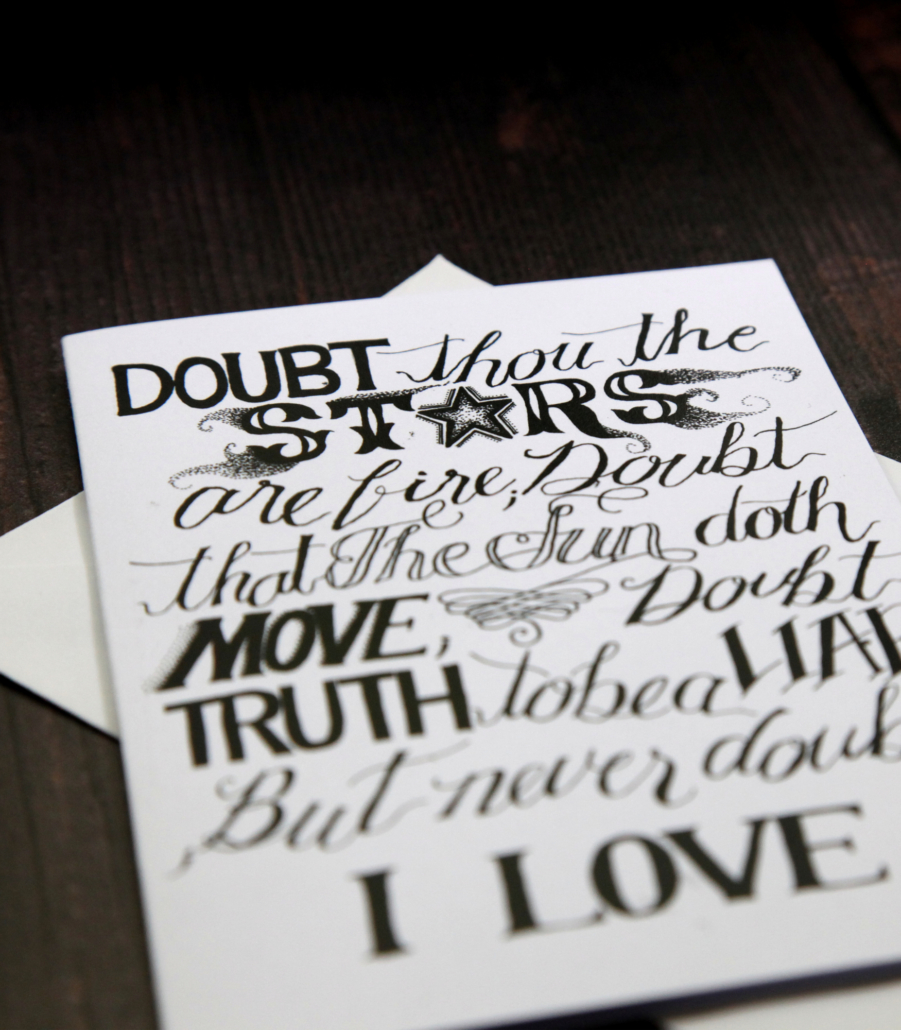 DOUBT thou the
STARS
are fire; Doubt
that The Sun doth
MOVE, Doubt
TRUTH to be a LIAR
But never doubt
I LOVE